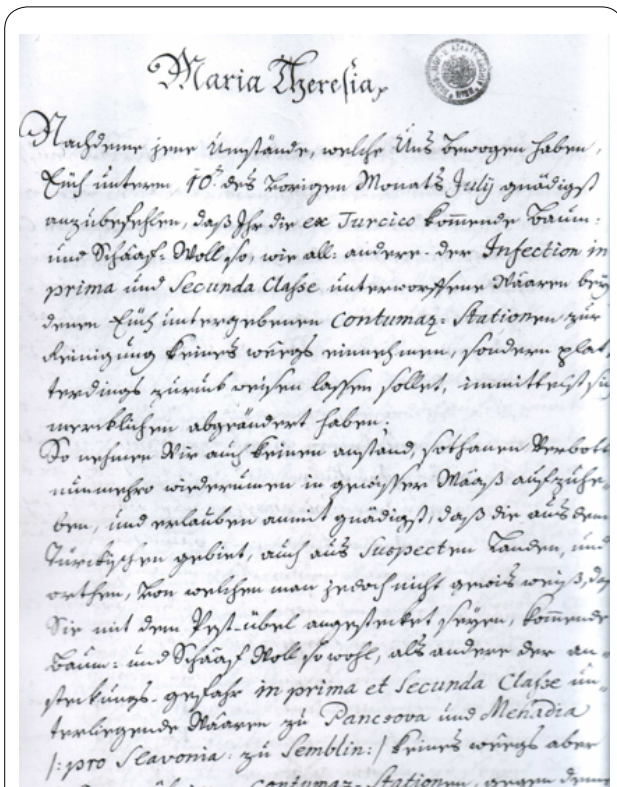 Maria Theresia
Nachdeme jene Umstände, welche Uns bewogen haben,
Euch unterm 10t des vorigen Monats July gnädigst
anzubefehlen, daß Ihr die ex Turcico kom̅ende Baum-
und Schaaf-Woll so, wie all-andere der Infection in
prima und Secunda Classe unterworffene Waaren bey
denen Euch untergebenen Contumaz-Stationen zur
Reinigung keines weegs einnehmen, sondern plat-
terdings zuruk weisen lassen sollet, immittelst sich
mercklichen abgeändert haben;
So nehmen Wir auch keinen anstand, sothanen Verbott
nunmehro wiederumen in gewisser Maaß aufzuhe-
ben, und erlauben anmit gnädigst, daß die aus dem
Türckischen gebiet, auch aus Suspecten Landen, und
orthen, von welchen man jedoch nicht gewis weiß, daß
Sie mit dem Pest-übel angestecket seyen, kom̅ende
Baum- und Schaaf Woll so wohl, als andere der an-
steckungs-gefahr in prima et Secunda Classe un-
terliegende Waaren zu Pancsova und Mehadia
/:pro Slavonia zu Semblin:/ keines weegs aber
Contumaz-Stationen, gegen deme